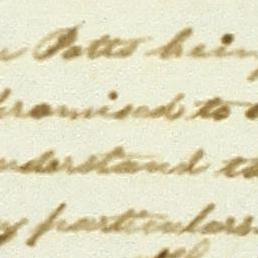 Potts being
promised to
understand
particulars